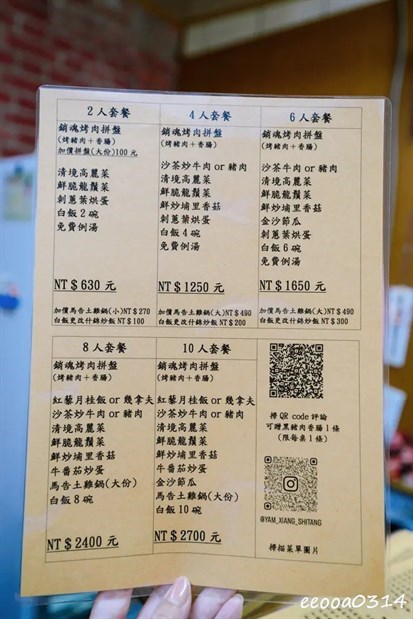 2人套餐
銷魂烤肉拼盤
(烤豬肉+香腸)
加價拼盤(大份)100元
清境高麗菜
鮮脆龍鬚菜
刺蔥葉烘蛋
白飯2碗
免費例湯
NT$630元
加價馬告土雞鍋(小)NT$270
白飯更改什錦炒飯NT$100
4人套餐
銷魂烤肉拼盤
(烤豬肉+香腸)
沙茶炒牛肉 or 豬肉
清境高麗菜
鮮脆龍鬚菜
鮮炒埔里香菇
刺蔥葉烘蛋
白飯4碗
免費例湯
NT$1250元
加價馬告土雞鍋(大)NT$490
白飯更改什錦炒飯NT$200
6人套餐
銷魂烤肉拼盤
(烤豬肉+香腸)
沙茶炒牛肉 or 豬肉
清境高麗菜
鮮脆龍鬚菜
鮮炒埔里香菇
金沙節瓜
刺蔥葉烘蛋
白飯6碗
免費例湯
NT$1650元
加價馬告土雞鍋(大)NT$490
白飯更改什錦炒飯NT$300
8人套餐
銷魂烤肉拼盤
(烤豬肉+香腸)
紅藜月桂飯 or 幾拿夫
沙茶炒牛肉 or 豬肉
清境高麗菜
鮮脆龍鬚菜
鮮炒埔里香菇
牛番茄炒蛋
馬告土雞鍋(大份)
白飯8碗
NT$2400元
10人套餐
銷魂烤肉拼盤
(烤豬肉+香腸)
紅藜月桂飯 or 幾拿夫
沙茶炒牛肉 or 豬肉
清境高麗菜
鮮脆龍鬚菜
鮮炒埔里香菇
牛番茄炒蛋
金沙節瓜
馬告土雞鍋(大份)
白飯10碗
NT$2700元
掃QR code評論
可贈黑豬肉香腸1條
(限每桌1條)
@YAM_XIANG_SHITANG
掃描菜單圖片
eeooa0314